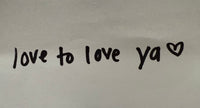 love to love ya ♡